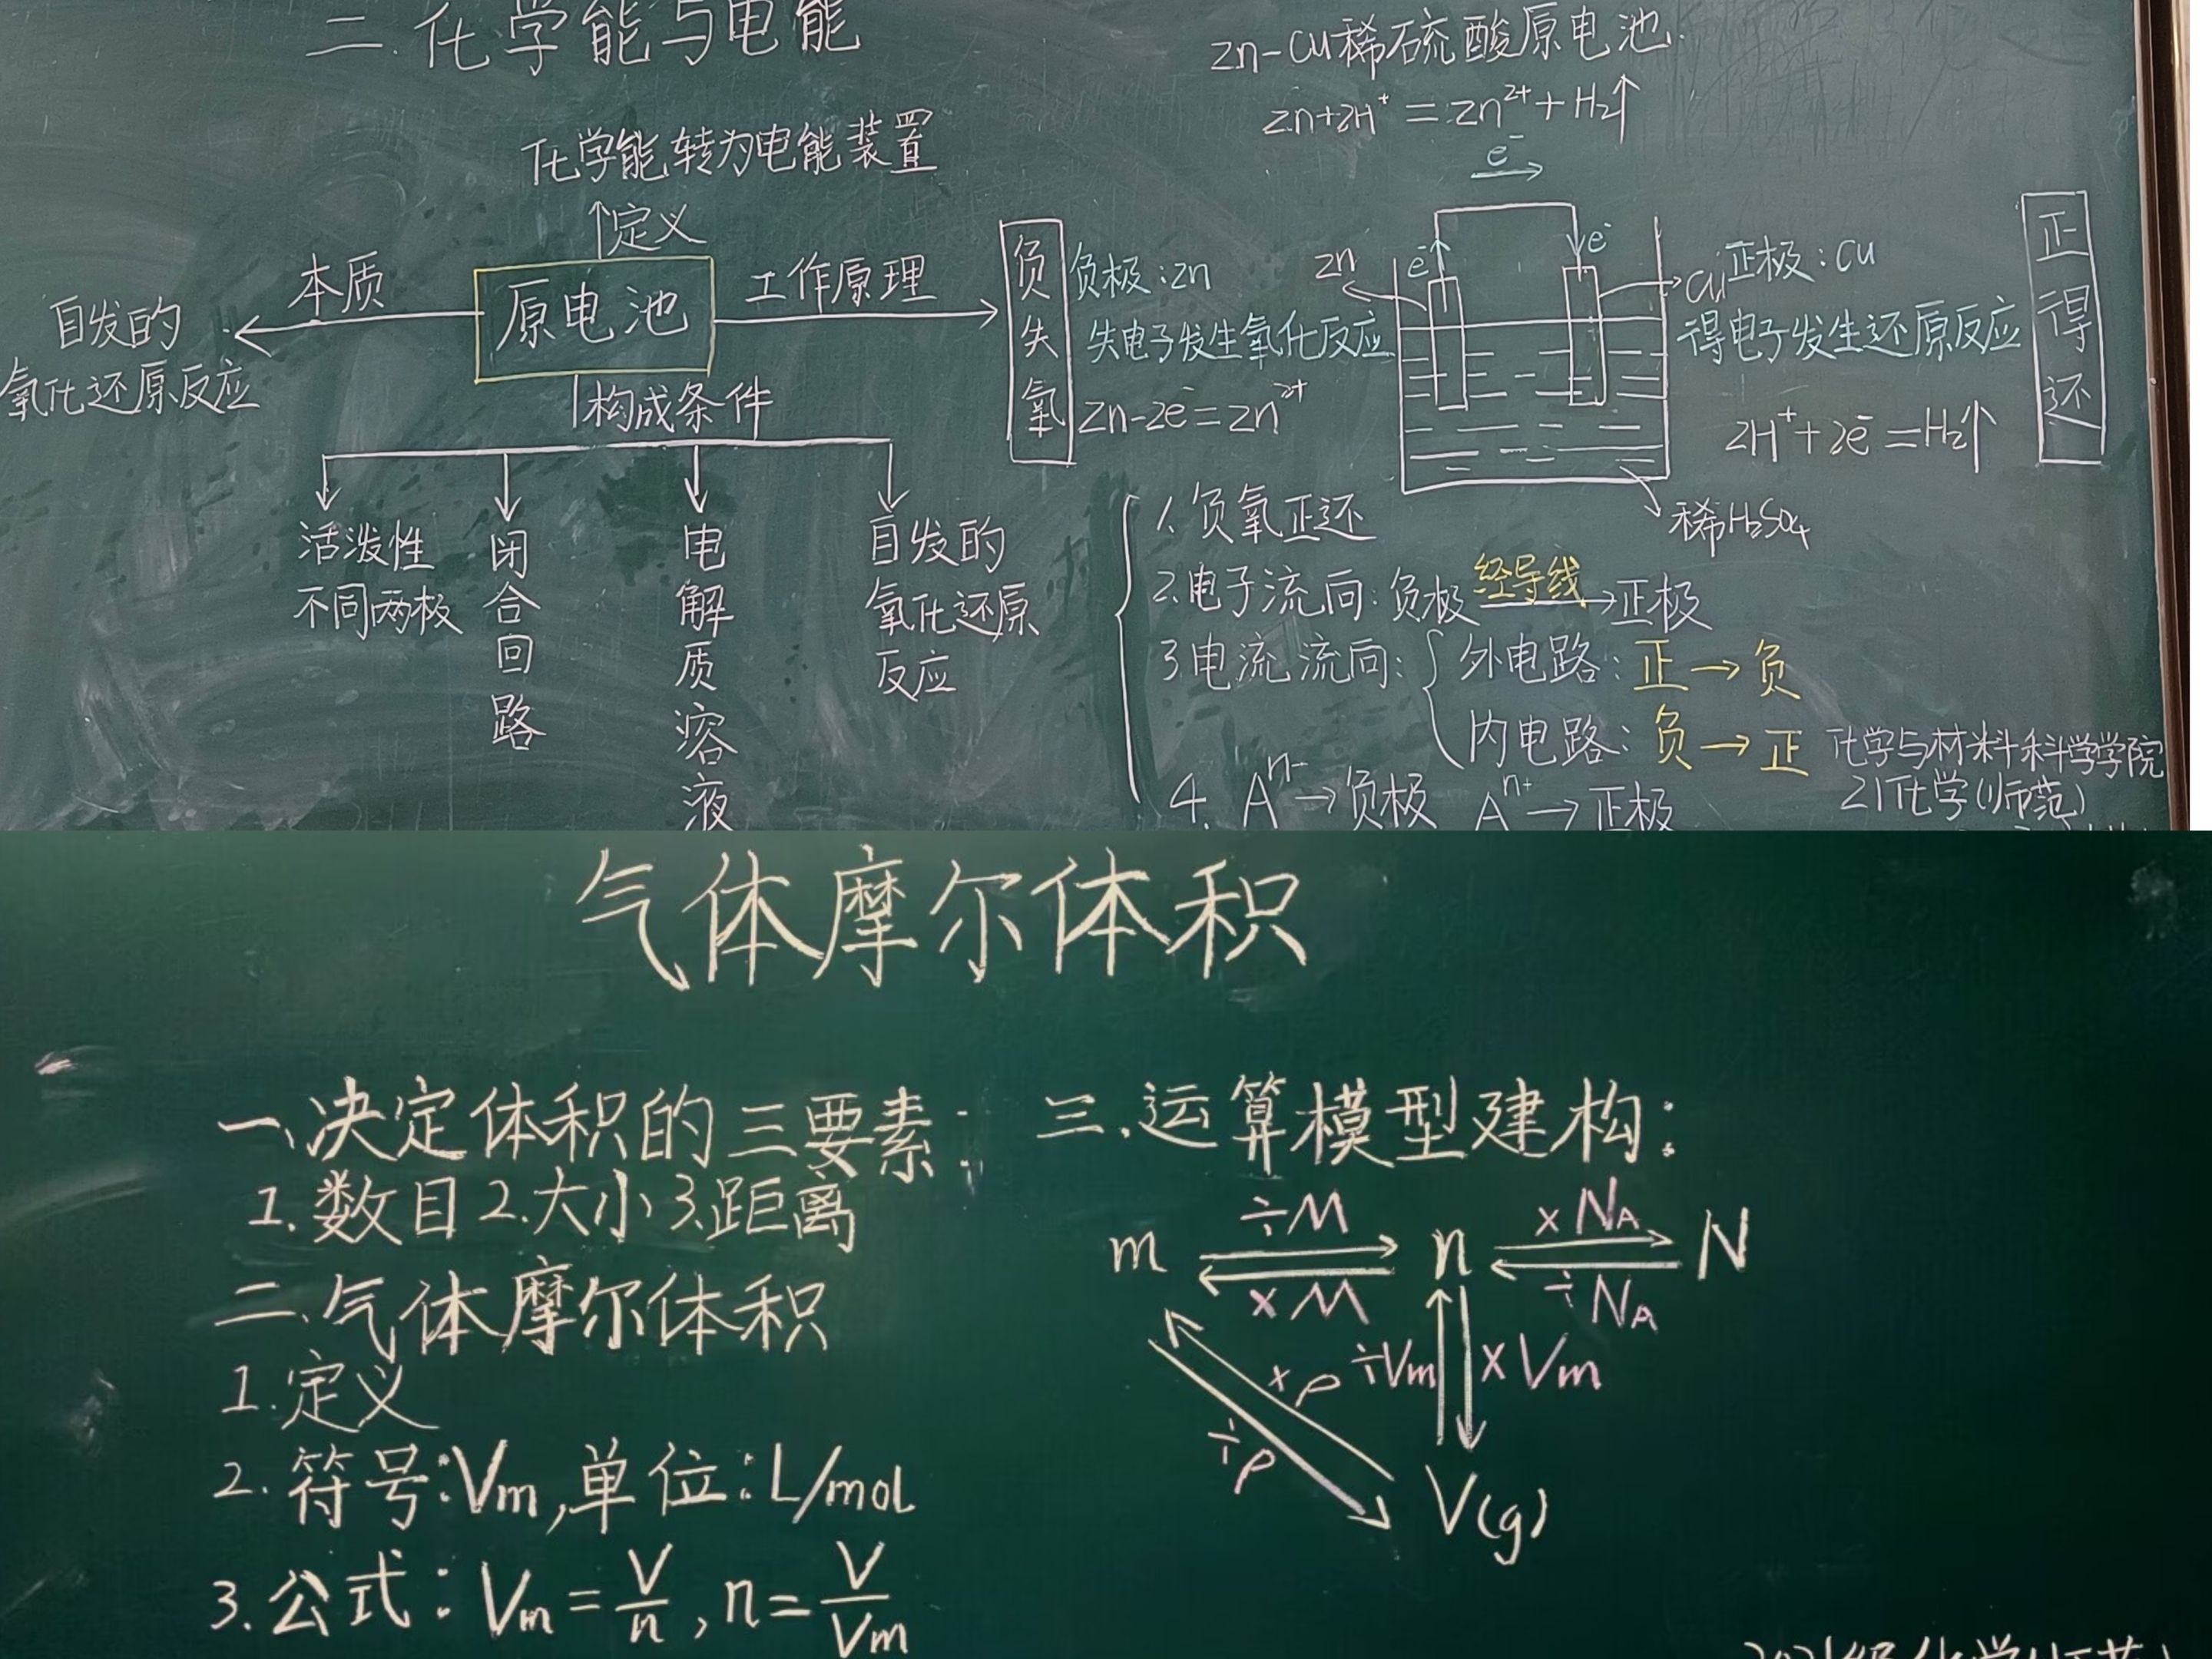 二.化学能与电能
化学能转为电能装置
定义
本质
原电池
工作原理
自发的
氧化还原反应
构成条件
活泼性
不同两极
闭合回路
电解质溶液
自发的
氧化还原
反应
Zn-Cu稀硫酸原电池.
Zn+2H⁺=Zn²⁺+H₂↑
e⁻
负失氧
负极:Zn
失电子发生氧化反应
Zn-2e⁻=Zn²⁺
Zn
e⁻
e⁻
Cu
正极:Cu
得电子发生还原反应
2H⁺+2e⁻=H₂↑
正得还
稀H₂SO₄
1.负氧正还
2.电子流向:负极 经导线→正极
3.电流流向:
外电路:正→负
内电路:负→正
4. Aⁿ⁻→负极 Aⁿ⁺→正极
化学与材料科学学院
21化学(师范)
气体摩尔体积
一、决定体积的三要素:
1.数目2.大小3.距离
二、气体摩尔体积
1.定义
2.符号:Vm,单位:L/mol
3.公式:Vm=V/n,n=V/Vm
三.运算模型建构:
÷M
×NA
m
n
N
×M
÷NA
×ρ
÷Vm
×Vm
÷ρ
V(g)